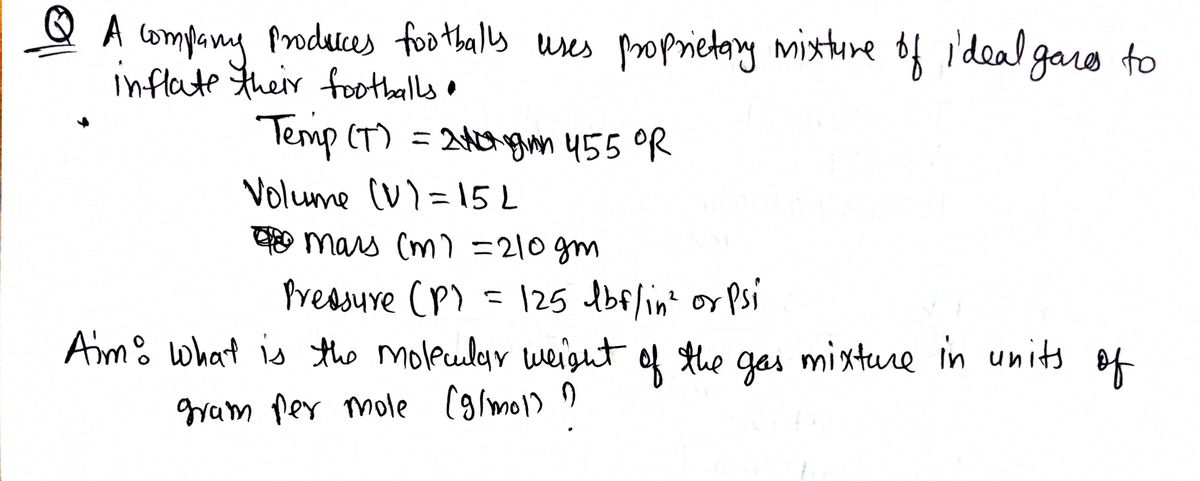 Q A company produces footballs uses proprietary mixture of ideal gases to
inflate their footballs.
Temp (T) = 455 °R
Volume (V) = 15 L
mass (m) = 210 gm
Pressure (P) = 125 lbf/in² or Psi
Aim: What is the molecular weight of the gas mixture in units of
gram per mole (g/mol) ?